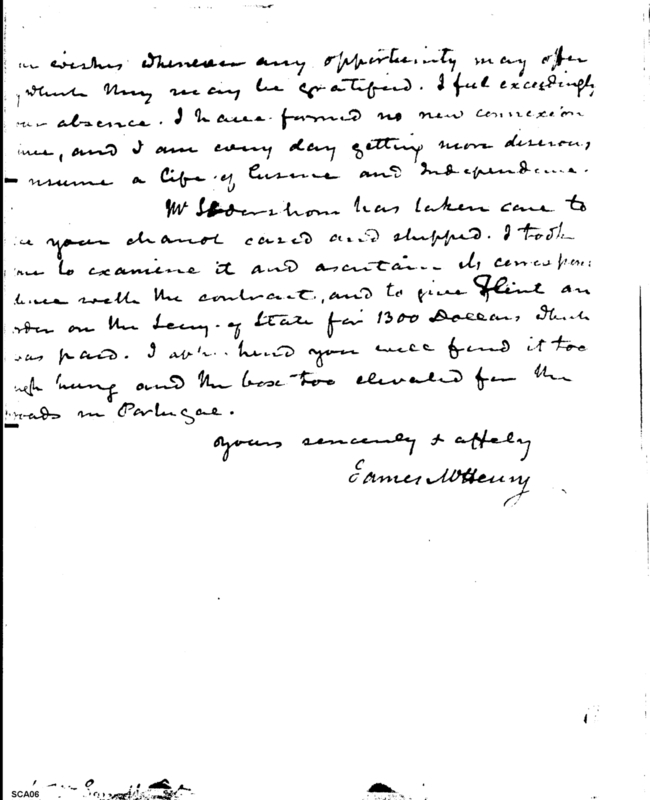 wishes whenever any opportunity may offer
which they may be gratified. I feel exceedingly
absence. I have formed no new connexion
and I am every day getting more desirous
a Life of Leisure and Independence.
Mr has taken care to
your chariot cased and shipped. I took
to examine it and ascertain its correspon:
with the contract, and to give Flint an
on the Secy. of State for 1300 Dollars which
was paid. I you will find it too
hung and the box too elevated for the
roads in Portugal.
Yours sincerely & affely
James McHenry
SCA06